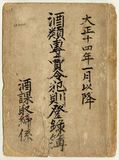 大正十四年一月以降
酒類專賣令犯則登錄簿
酒課取締係